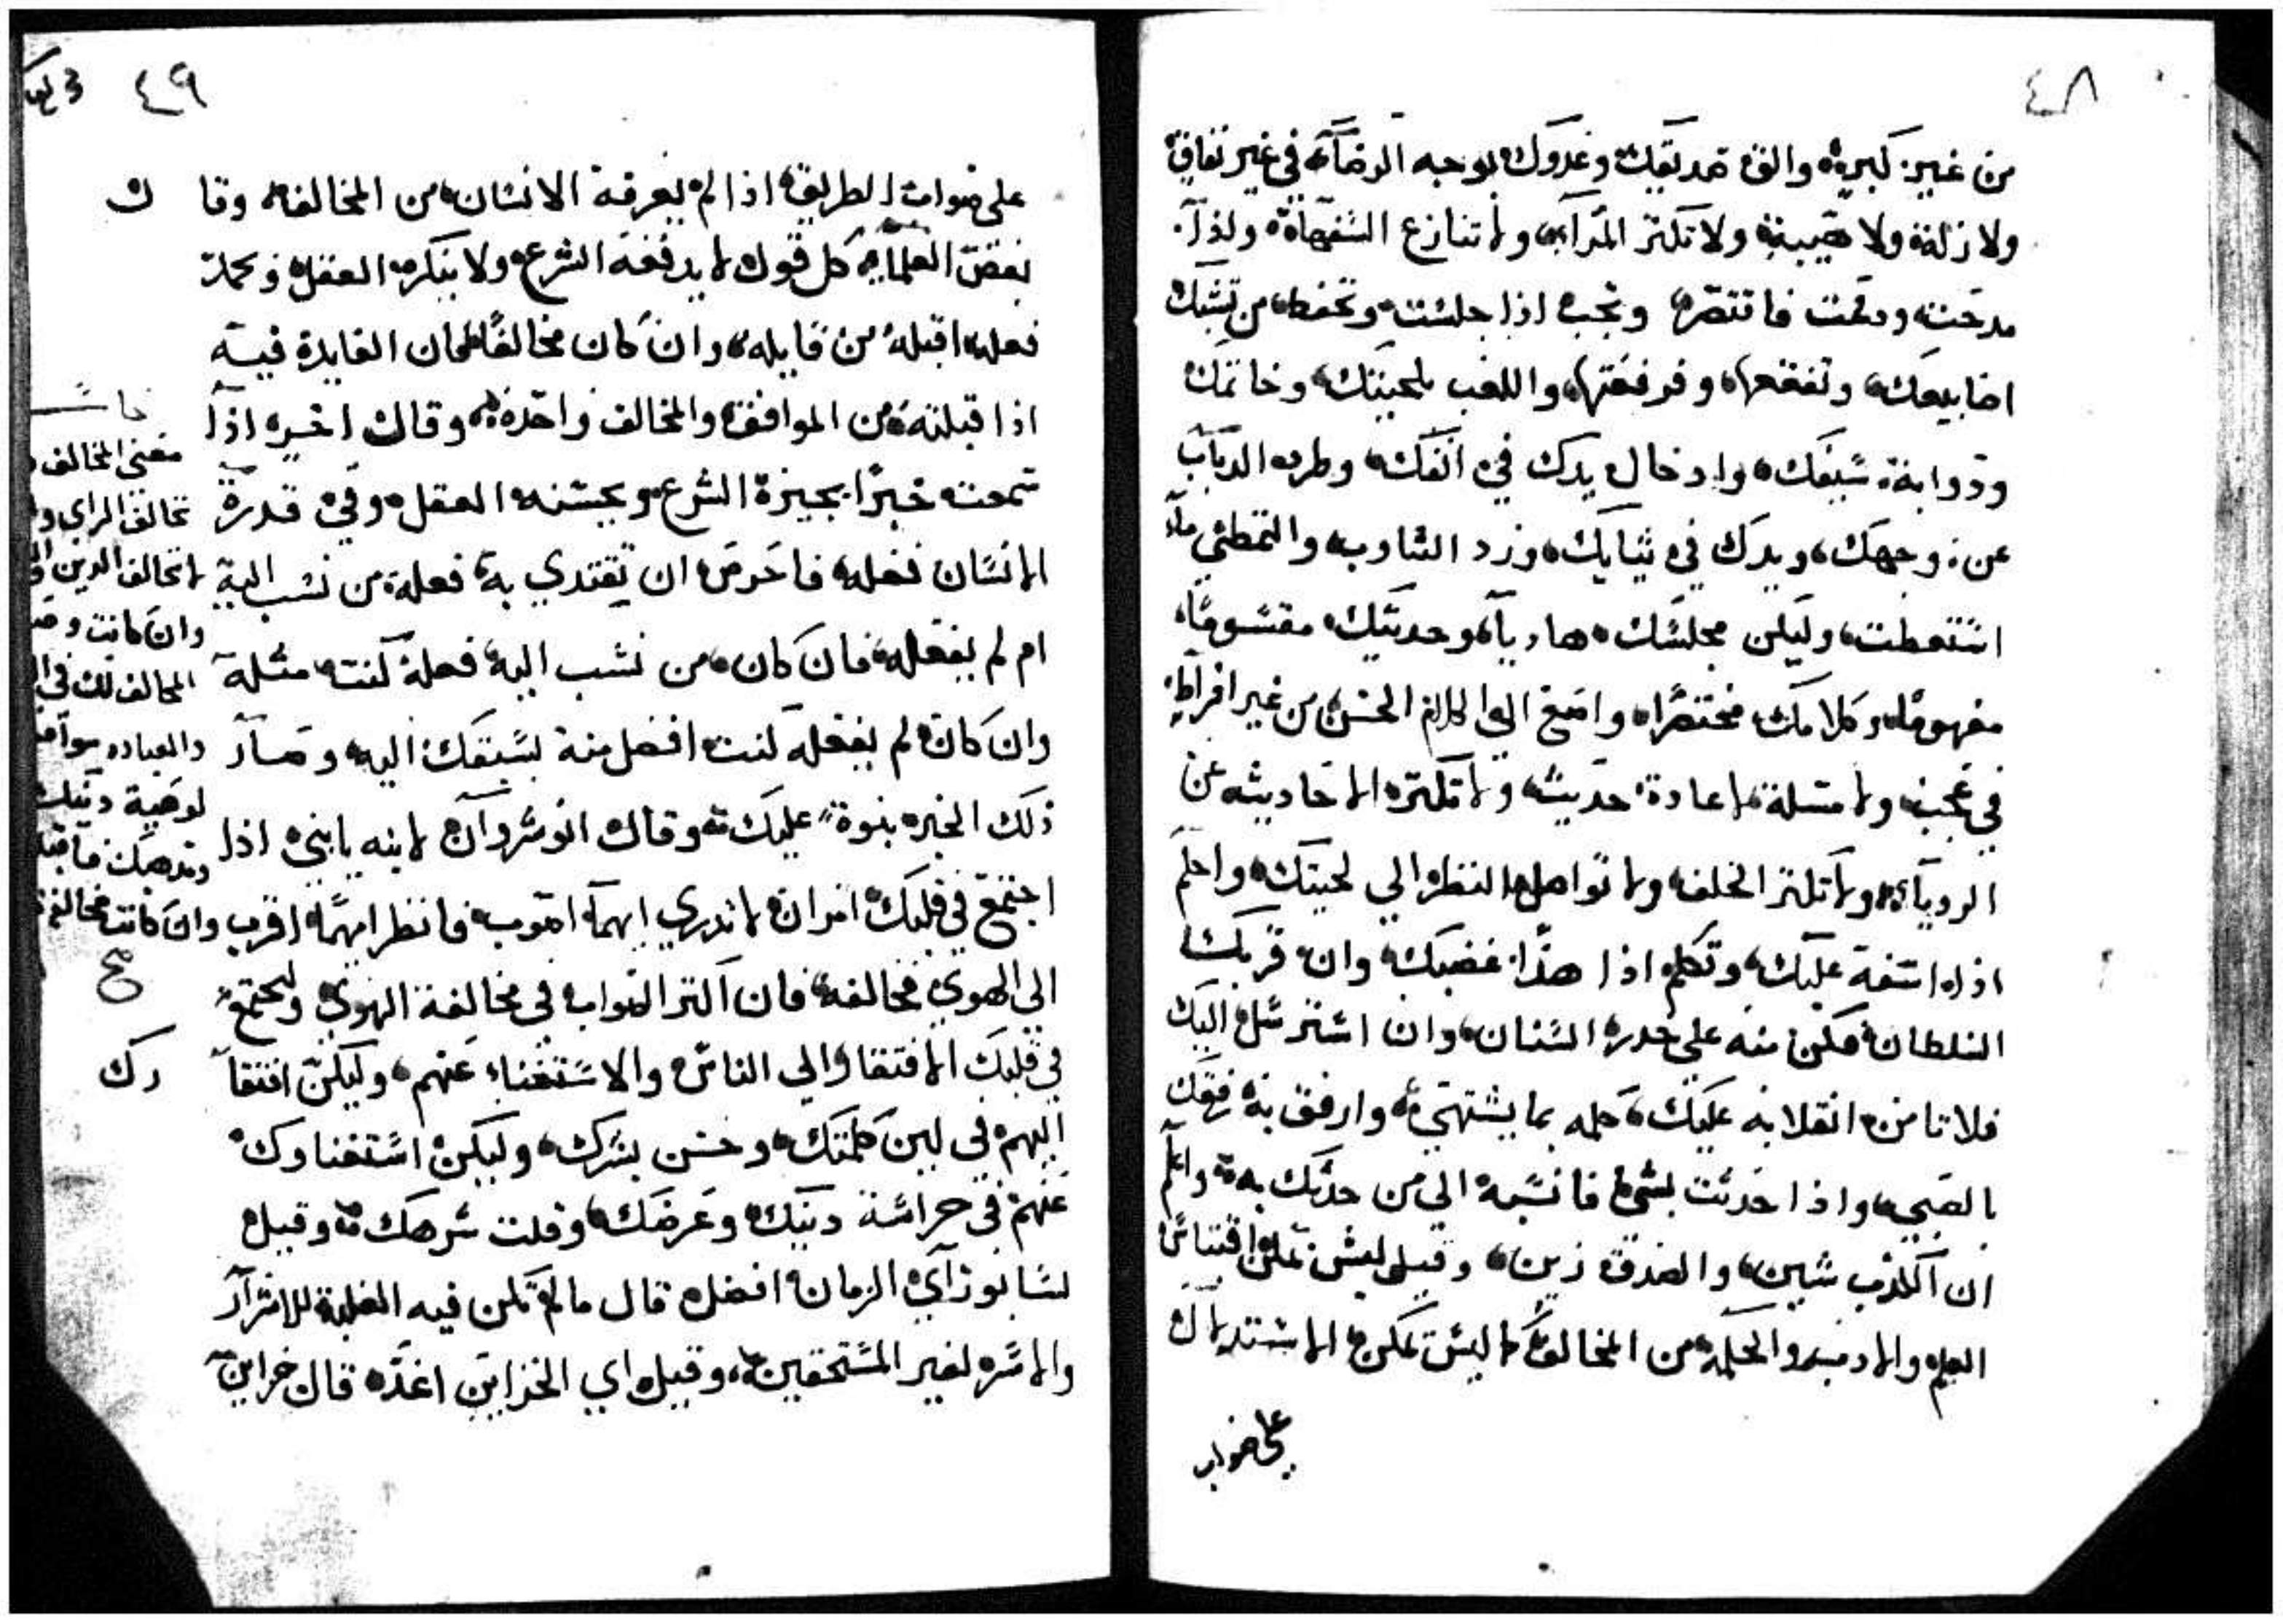 ٤٨
من غير كبرة والق صديقك وعدوك بوجه الرضاء في غير نفاق
ولا زلة ولا هيبة ولا تكثر المرآء ولا تنازع السفهاء ولذا
مدحت وذممت فاقتصر وتحبب اذا جلست وتحفظ من تشبيك
اصابيعك وتفقعها وفرقعتها واللعب بلحيتك وخاتمك
وذوابة سيفك وادخال يدك في انفك وطرد الدباب
عن وجهك ويدك في ثيابك ورد التثاوب والتمطي ما
استطعت وليكن مجلسك هاديا وحديثك مقسوما
مفهوما وكلامك مختصرا واصغ الى الكلام الحسن من غير افراط
في عجب ولا مسلة لاعادة حديث ولا تكثر الاحاديث عن
الرويا ولا تكثر الحلف ولا تواصل النظر الي لحيتك واحلم
اذا اسفه عليك وتكلم اذا هدا غضبك وان قربك
السلطان فكن منه على حدر السنان وان استرسل اليك
فلا تامن انقلابه عليك كلمه بما يشتهي وارفق به رفقك
بالصبي واذا حدثت بشي فانسبه الي من حدثك به واعلم
ان الكذب شين والصدق زين وقيل ليس تمكن اقتباس
العلم والادب والحكمة من المخالف كما ليس تمكن الاستدلال
على صواب
٤٩
على صواب الطريق اذا لم يعرفه الانسان من المخالف وقال
بعض العلماء كل قول لا يدفعه الشرع ولا ينكره العقل وحمد
فعله اقبله من قايله وان كان مخالفا لكان الفايدة فيه
اذا قبلته من الموافق والمخالف واحدة وقال اخر اذا
سمعت خبرا يجيزه الشرع ويحسنه العقل وفي قدرة
الانسان فعله فاحرص ان تقتدي به فعله من نسب اليه
ام لم يفعله فان كان من نسب اليه فعله كنت مثله
وان كان لم يفعله كنت افضل منه بسبقك اليه وصار
ذلك الخير بنوة عليك وقال انوشروان لابنه يا بني اذا
اجتمع في قلبك امران لا تدري ايهما اصوب فانظر ايهما اقرب
الى الهوي فخالفه فان اكثر الصواب في مخالفة الهوي وليجتمع
في قلبك الافتقار الي الناس والاستغناء عنهم وليكن افتقارك
اليهم في لين كلمتك وحسن بشرك وليكن استغناوك
عنهم في حراسة دينك وعرضك وقلت شرهك وقيل
لسابور اي الزمان افضل قال ما لم تكن فيه الغلبة للاشرار
والاسر لغير المستحقين وقيل اي الخزاين اعده قال خزاين
معنى المخالف
تخالف الراي
لا تخالف الدين
وان كانت
المخالف لك في
والعباده
لوصية دينك
ومدهبك
وان كانت مخالفة
صح